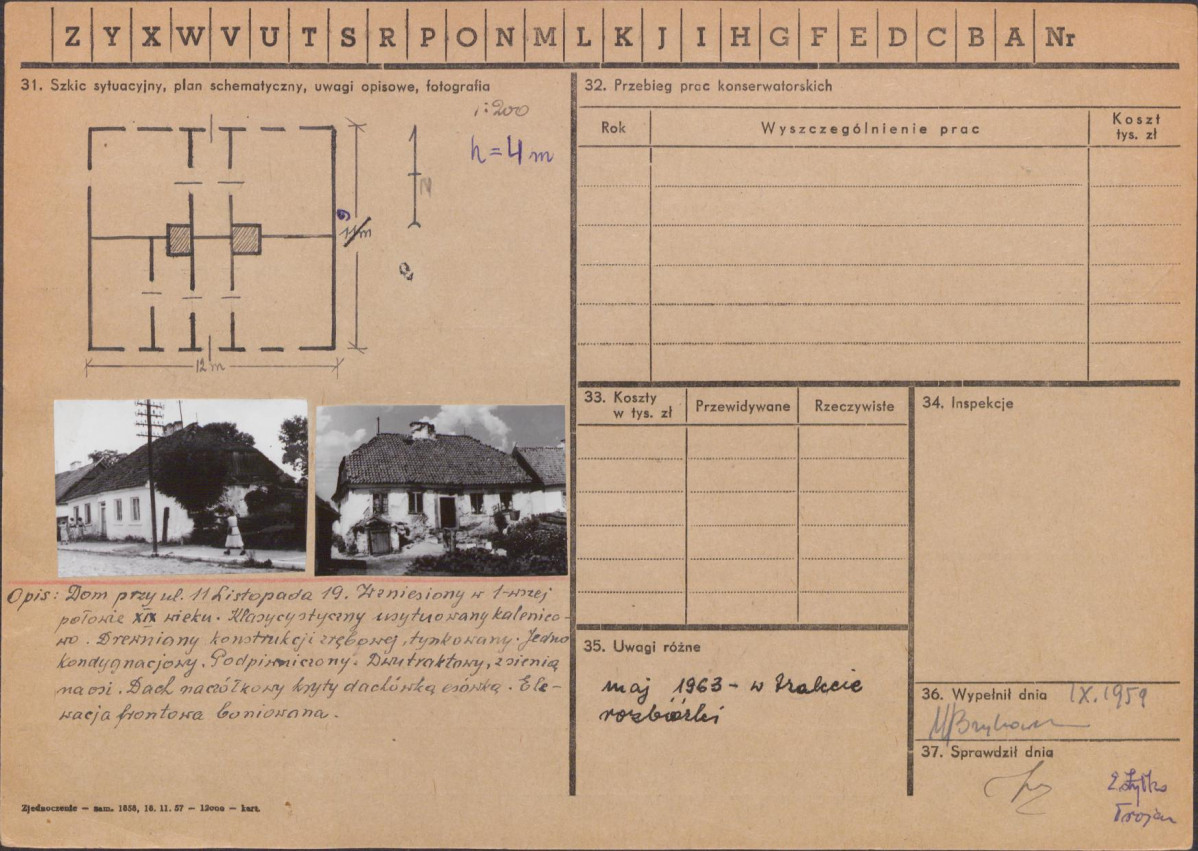 Z Y X W V U T S R P O N M L K J I H G F E D C B A Nr
31. Szkic sytuacyjny, plan schematyczny, uwagi opisowe, fotografia
1:200
h = 4 m
N
9
11 m
12 m
Opis: Dom przy ul. 11 Listopada 19. Wzniesiony w 1-wszej
połowie XIX wieku. Klasycystyczny usytuowany kalenico-
wo. Drewniany konstrukcji zrębowej, tynkowany. Jedno
kondygnacjowy. Podpiwniczony. Dwutraktowy, z sienią
na osi. Dach naczółkowy kryty dachówką esówką. Ele-
wacja frontowa boniowana.
Zjednoczenie — zam. 1858, 16. 11. 57 — 12000 — kart.
32. Przebieg prac konserwatorskich
Rok
Wyszczególnienie prac
Koszt
tys. zł
33. Koszty
w tys. zł
Przewidywane
Rzeczywiste
34. Inspekcje
35. Uwagi różne
maj 1963 - w trakcie
rozbiórki
36. Wypełnił dnia IX.1959
37. Sprawdził dnia